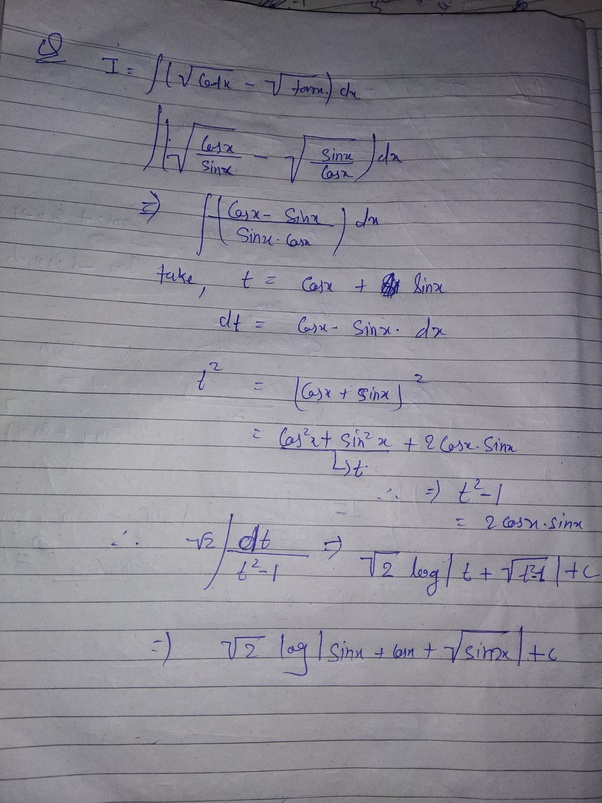 Q I = ∫(√cotx - √tanx) dx
∫(√(Cosx/Sinx) - √(Sinx/Cosx)) dx
⇒ ∫((Cosx - Sinx)/(Sinx · Cosx)) dx
take, t = Cosx + Sinx
dt = Cosx - Sinx · dx
t² = (Cosx + Sinx)²
= Cos²x + Sin²x + 2 Cosx · Sinx
↳ 1.
∴ ⇒ t² - 1
= 2 cosx · sinx
∴ √2 ∫ dt/(t² - 1) ⇒ √2 log | t + √(t²-1) | + c
⇒ √2 log | Sinx + cosx + √sin2x | + c